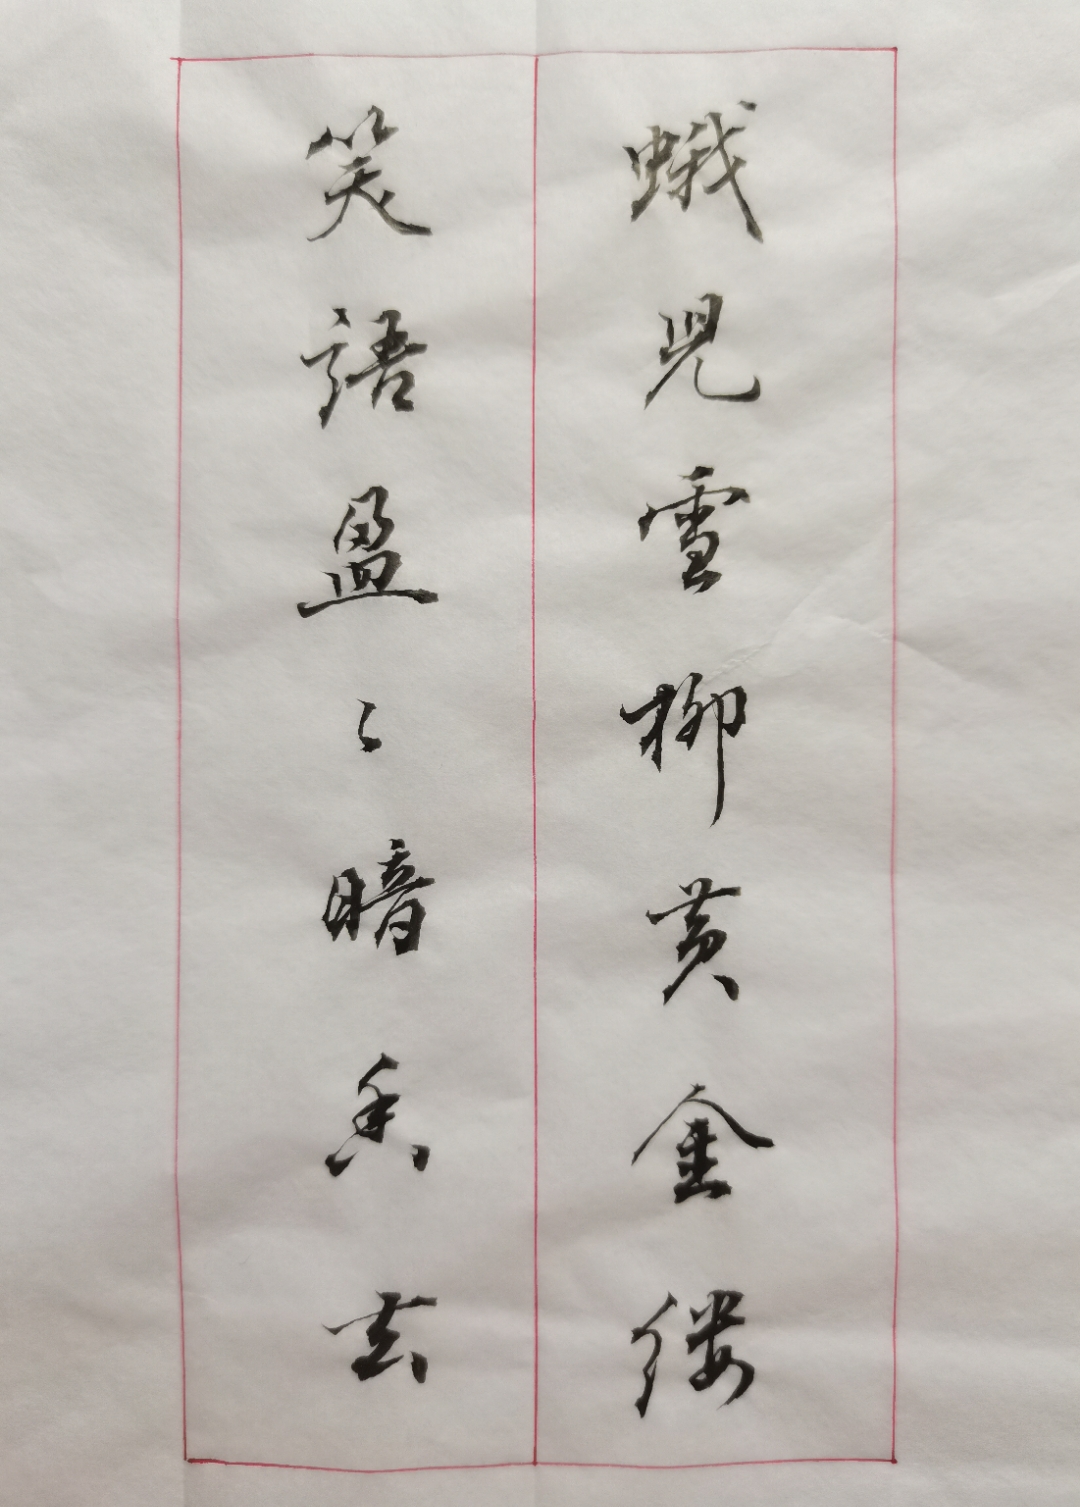 蛾兒雪柳黄金縷
笑語盈々暗香去